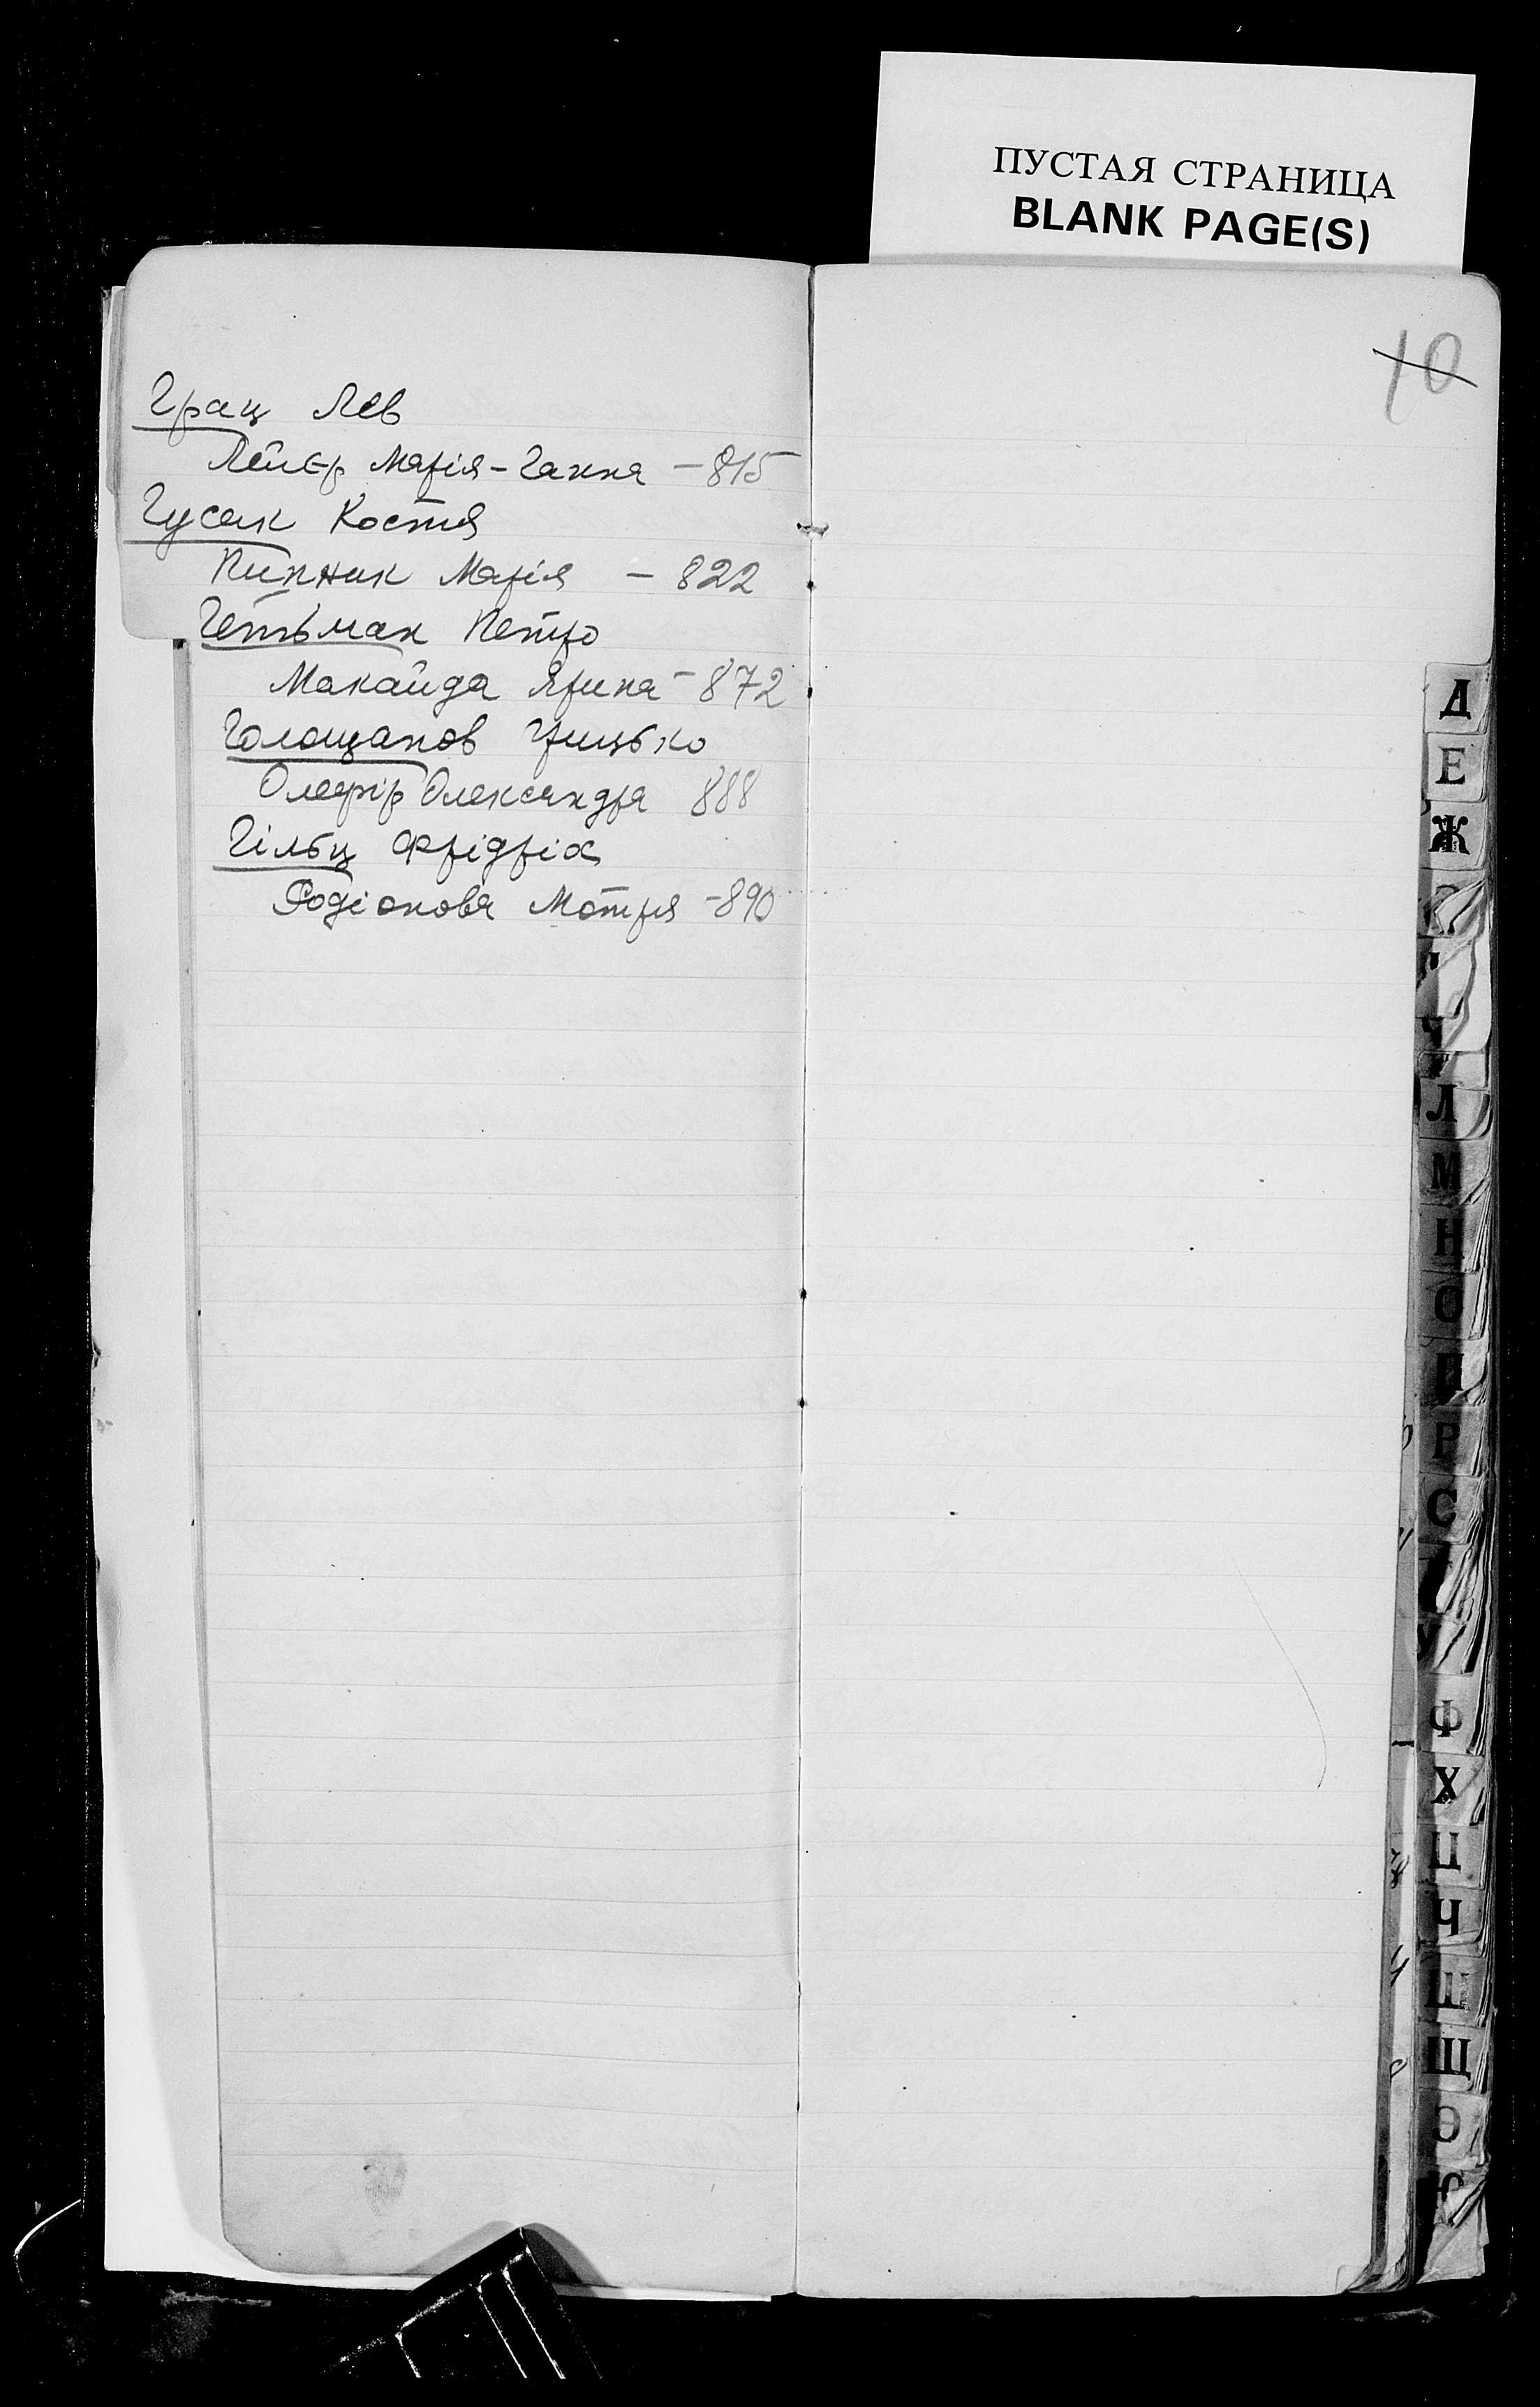 ПУСТАЯ СТРАНИЦА
BLANK PAGE(S)
10
Грац Лев
Лейєр Марія-Ганна – 815
Гусак Костя
Пипник Марія – 822
Гетьман Петро
Макайда Ярина – 872
Голощапов Грицько
Олефір Олександра 888
Гільц Фрідріх
Родіонова Мотря – 890
Д
Е
Ж
Л
М
Н
О
П
Р
С
У
Ф
Х
Ц
Ч
Ш
Щ
Э
Ю